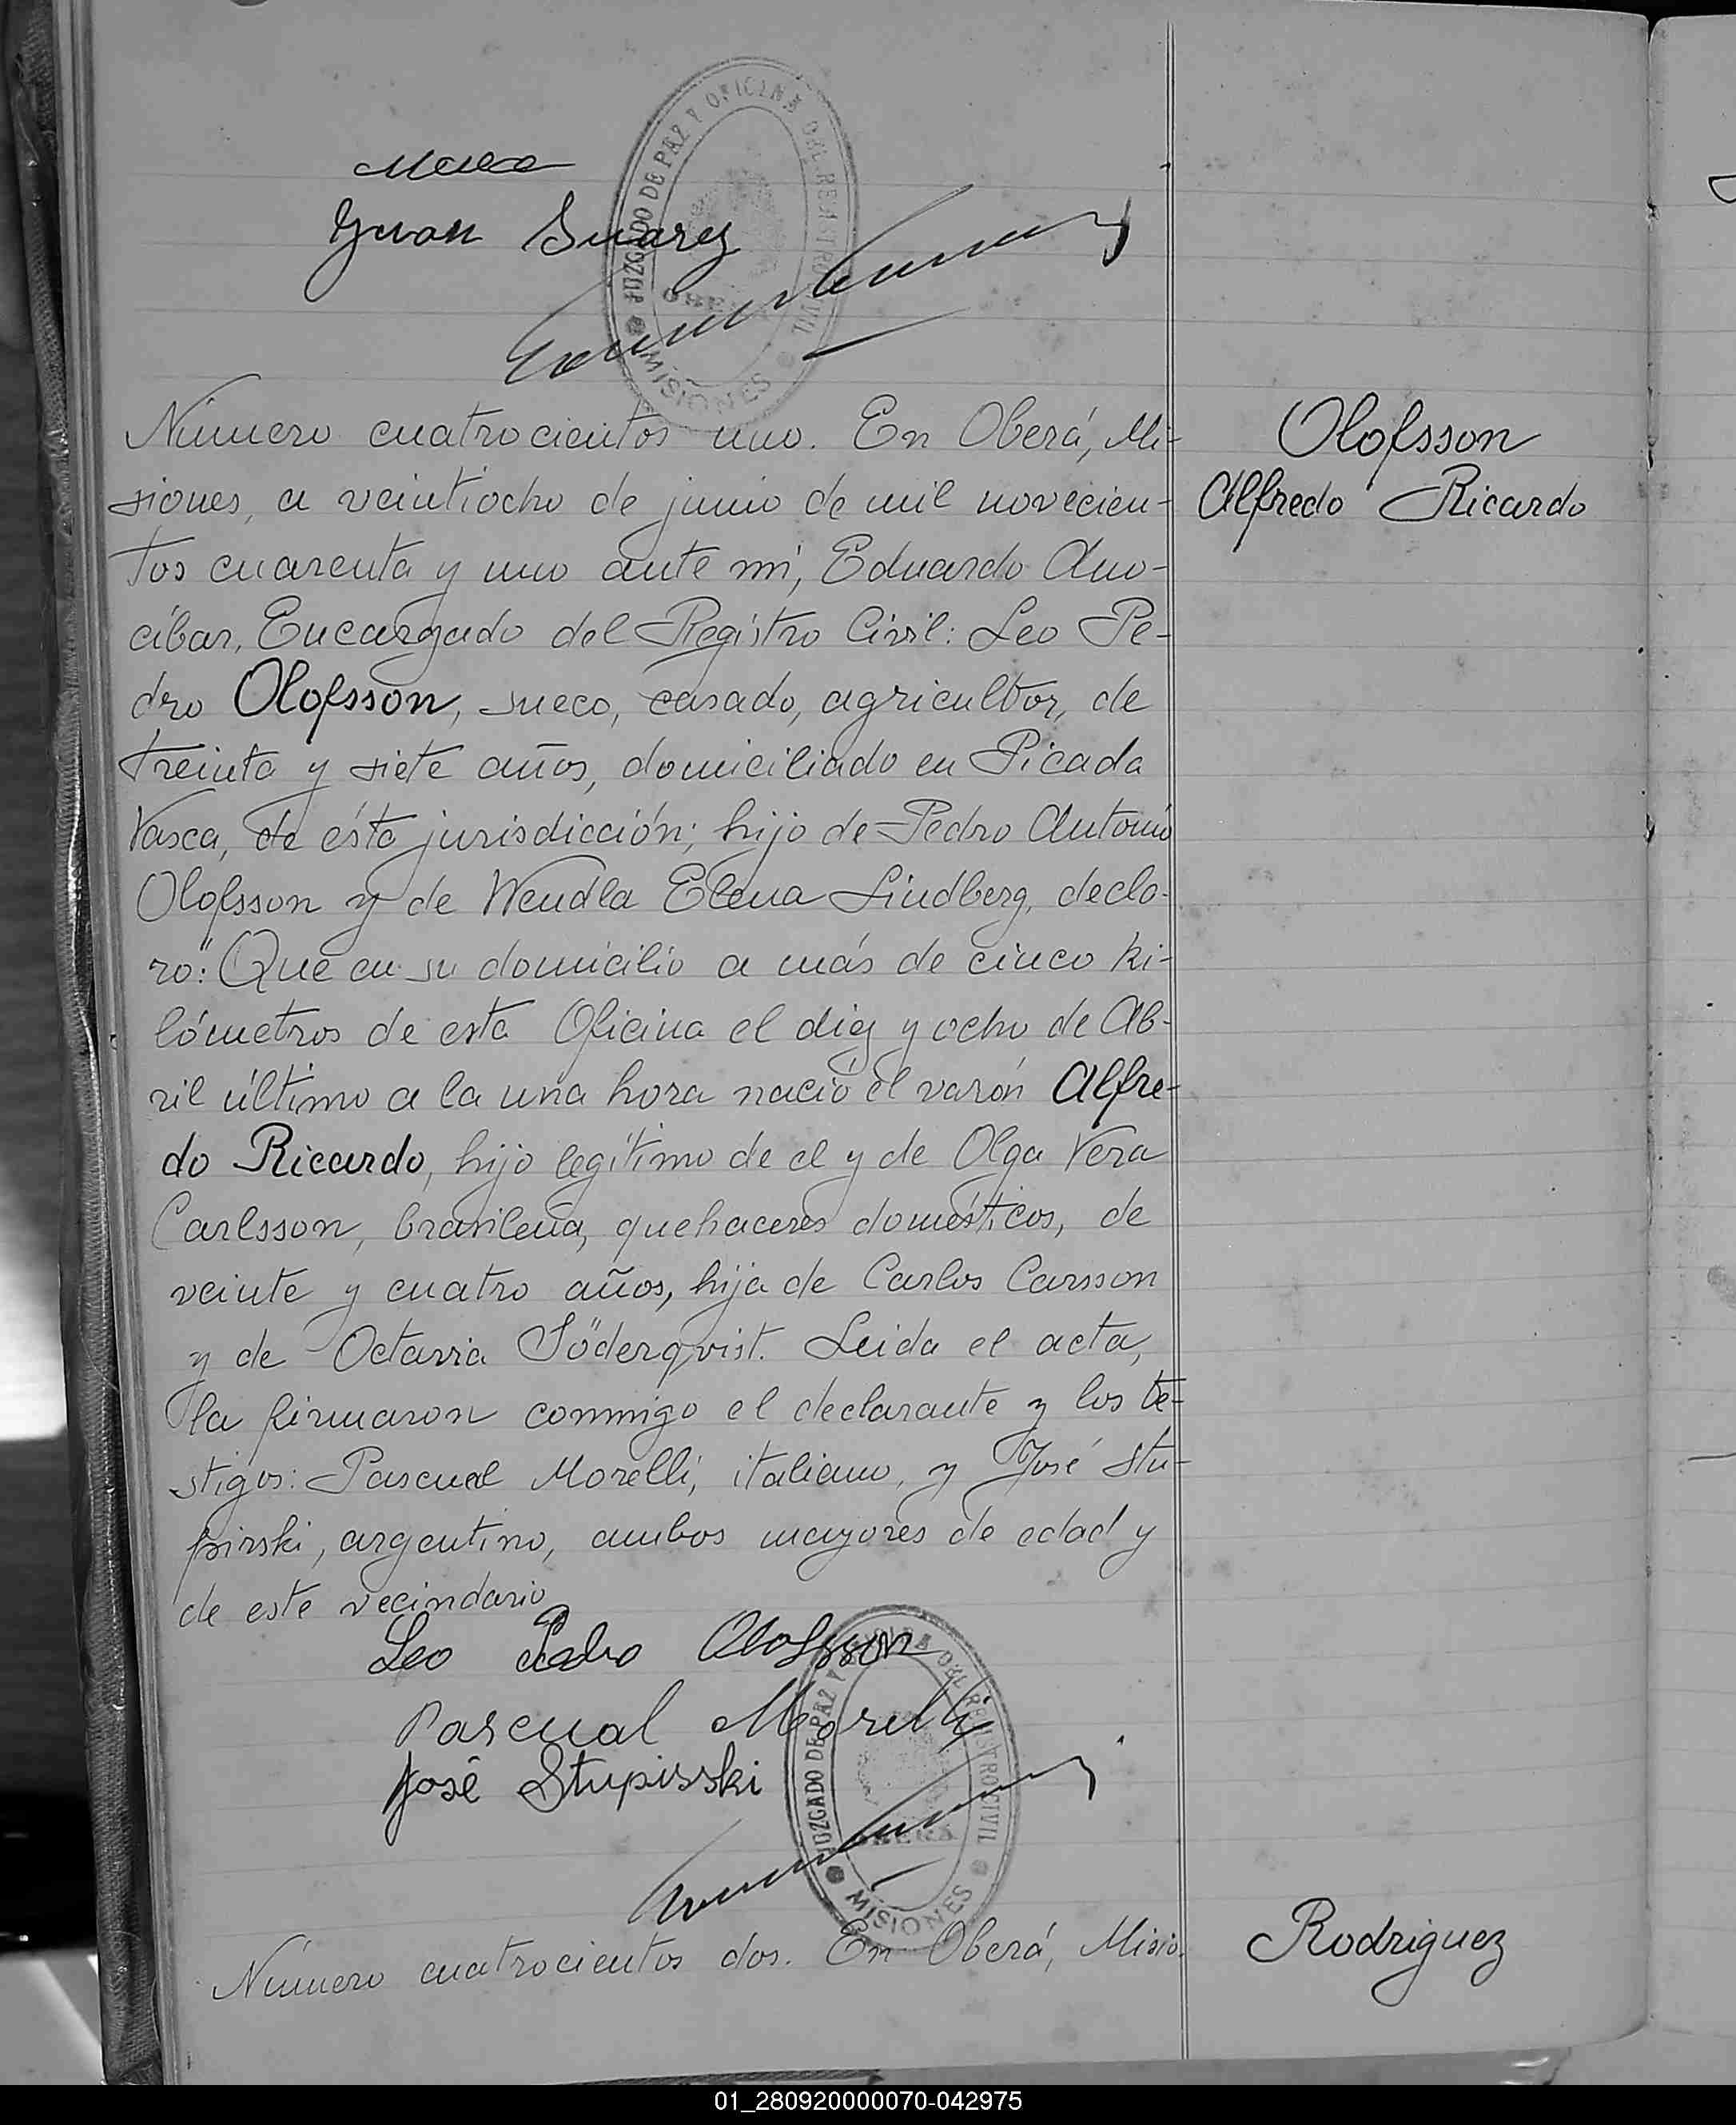 Juan Suarez
JUZGADO DE PAZ Y OFICINA DEL REGISTRO CIVIL
OBERÁ
MISIONES
Número cuatrocientos uno. En Oberá, Mi-
siones, a veintiocho de junio de mil novecien-
tos cuarenta y uno ante mí, Eduardo Ano-
cíbar, Encargado del Registro Civil: Leo Pe-
dro Olofsson, sueco, casado, agricultor, de
treinta y siete años, domiciliado en Picada
Vasca, de ésta jurisdicción; hijo de Pedro Antonio
Olofsson y de Wendla Elena Lindberg, decla-
ró: "Que en su domicilio a más de cinco ki-
lómetros de esta Oficina el diez y ocho de Ab-
ril último a la una hora nació el varón Alfre-
do Ricardo, hijo legítimo de el y de Olga Vera
Carlsson, brasileña, quehaceres domésticos, de
veinte y cuatro años, hija de Carlos Carsson
y de Octavia Söderqvist. Leida el acta,
la firmaron conmigo el declarante y los te-
stigos: Pascual Morelli, italiano, y José Stu-
pirski, argentino, ambos mayores de edad y
de este vecindario
Leo Pedro Olofsson
Pascual Morelli
José Stupirski
JUZGADO DE PAZ Y OFICINA DEL REGISTRO CIVIL
OBERÁ
MISIONES
Número cuatrocientos dos. En Oberá, Misio-
Olofsson
Alfredo Ricardo
Rodriguez
01_280920000070-042975